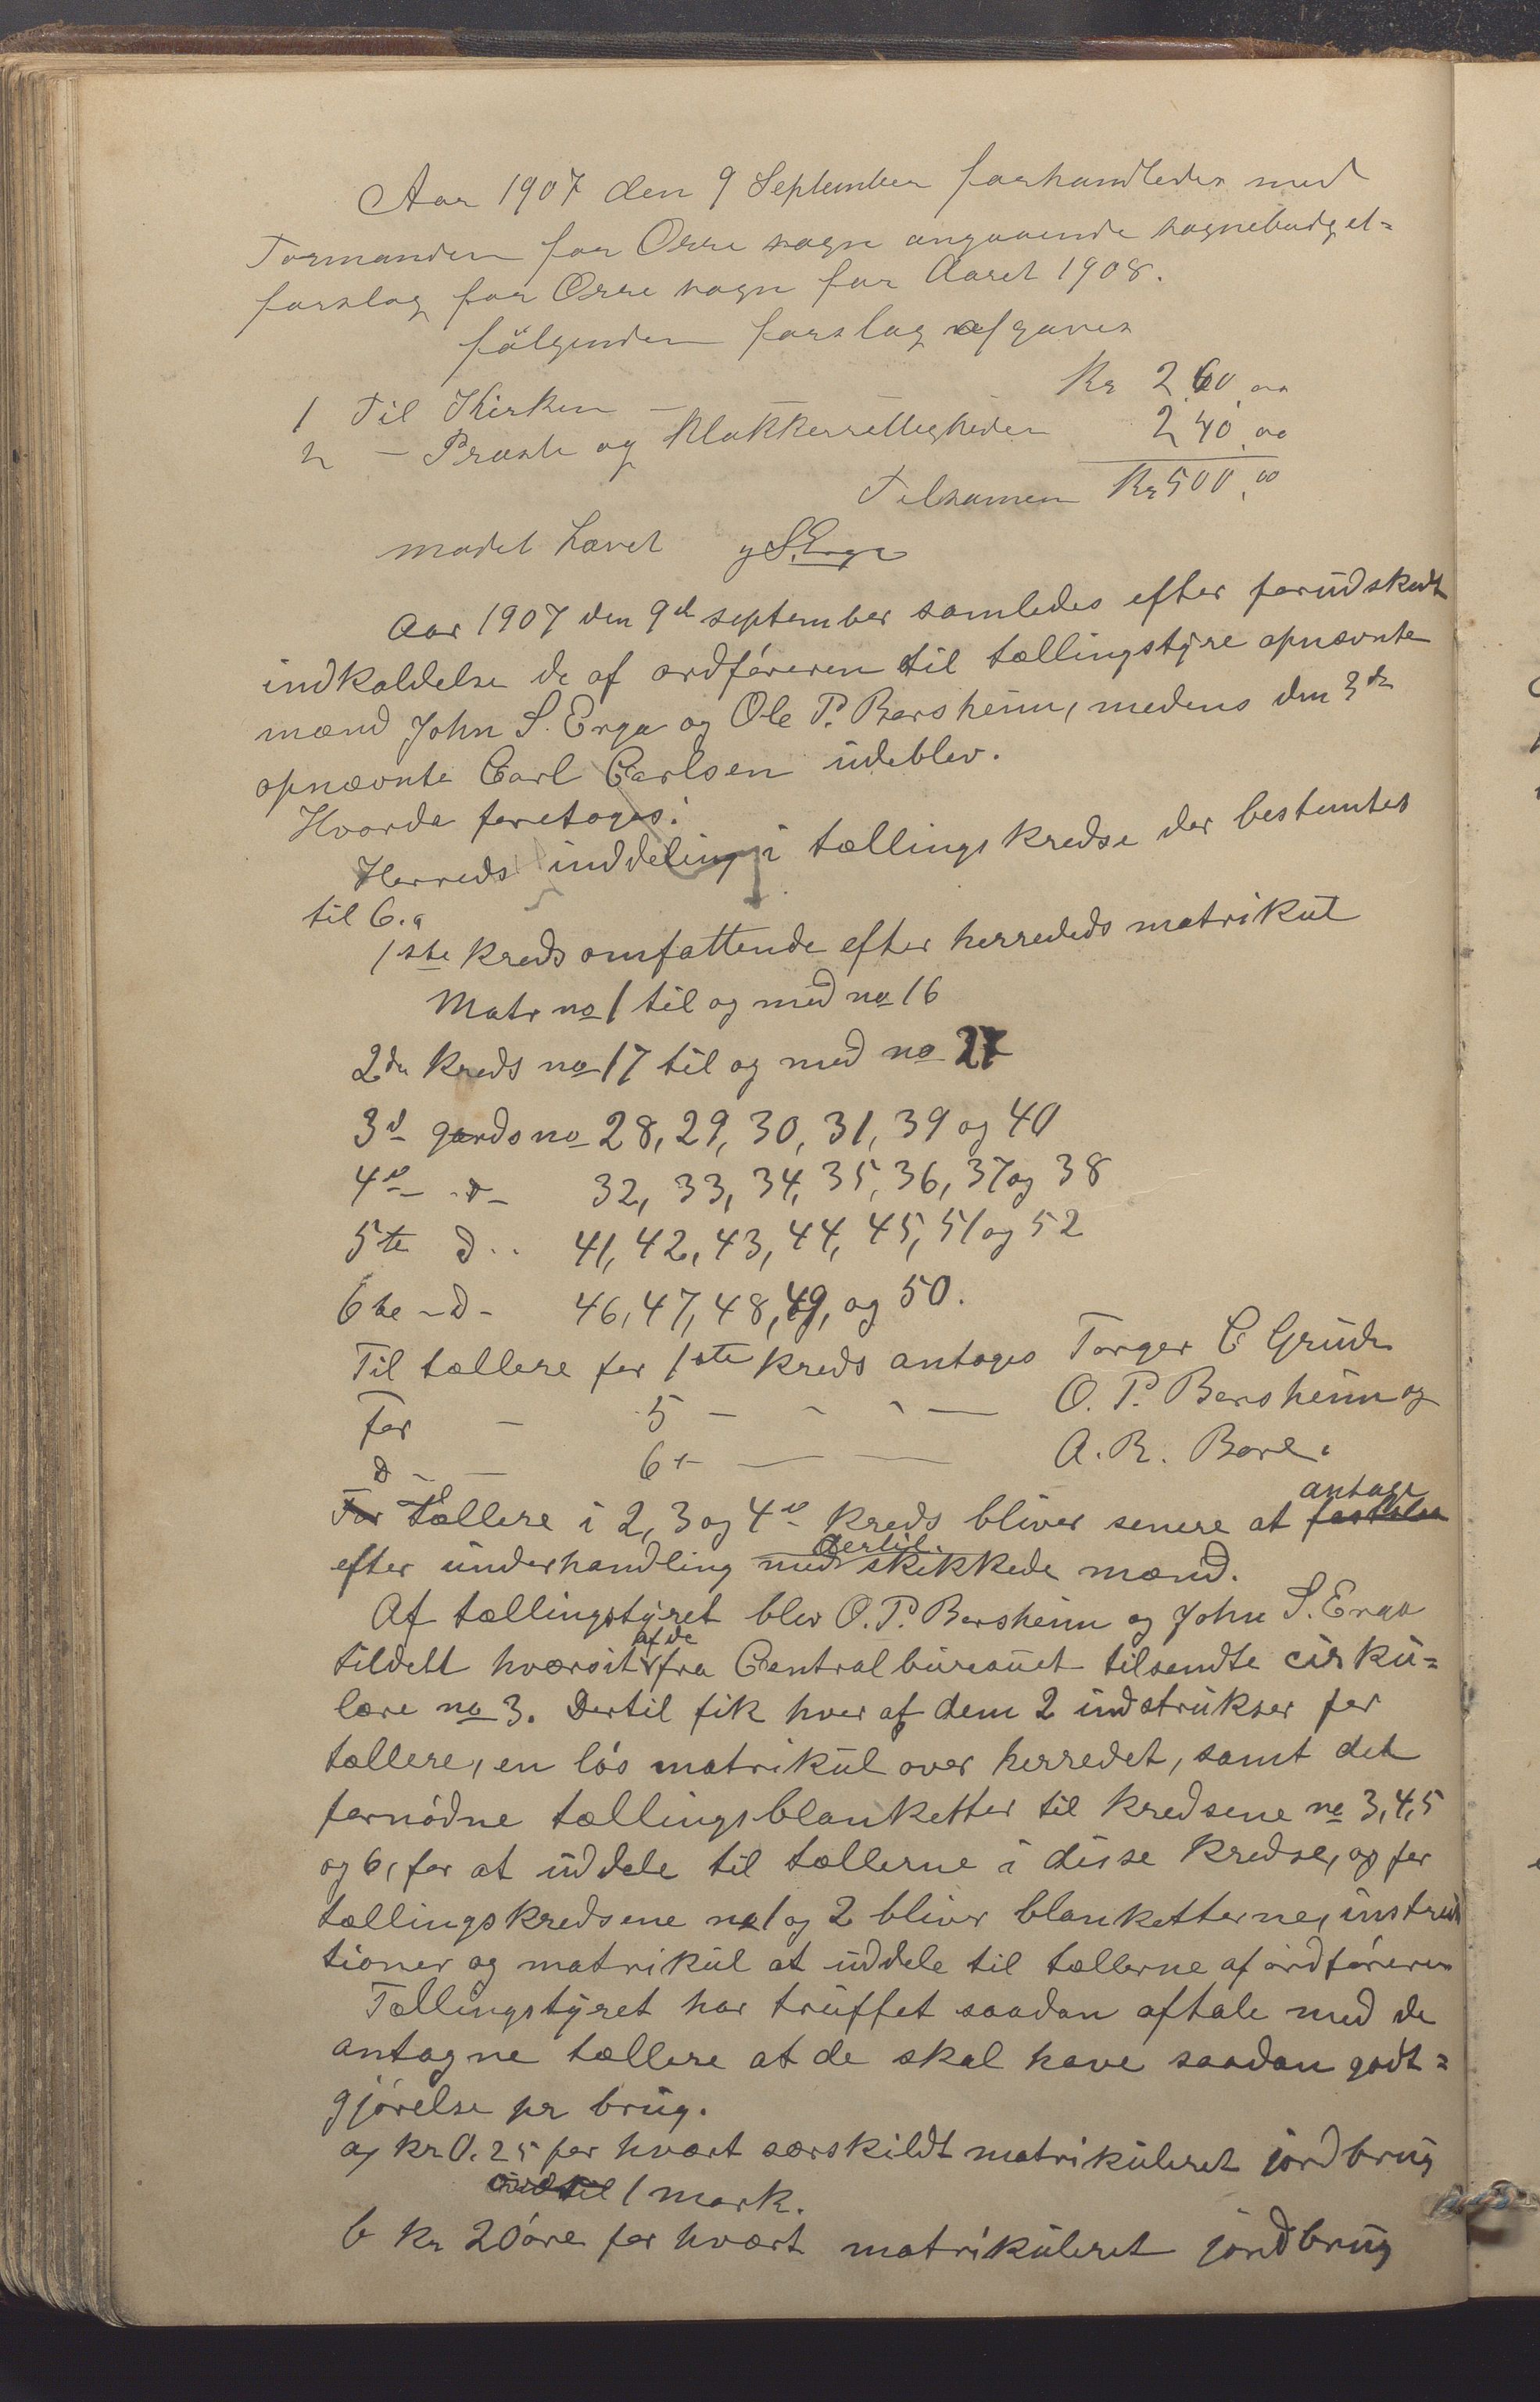 Aar 1907 den 9 September forhandledes med
Formanden for Orre sogn angaaende sognebudget=
forslag for Orre sogn for Aaret 1908.
følgenden forslag afgaves
1 Til Kirken - Kr 260,00
2 - Præste og Klokkerrettigheder 240,00
Tilsamen Kr 500,00
mødet hævet JS.Erga
Aar 1907 den 9de september samledes efter forudskedt
indkaldelse de af ordføreren til tællingstyre opnævnte
mænd John S. Erga og Ole P. Borsheim, medens den 3de
opnævnte Carl Carlsen udeblev.
Hvorda foretoges:
Herreds inddeling i tællings kredse der bestemtes
til 6.
1ste kreds omfattende efter herredets matrikul
Matr no 1 til og med no 16
2den kreds no 17 til og med no 27
3d gards no 28, 29, 30, 31, 39 og 40
4de -d- 32, 33, 34, 35, 36, 37 og 38
5te d.. 41, 42, 43, 44, 45, 51 og 52
6te -d- 46, 47, 48, 49, og 50.
Til tællere for 1ste kreds antoges Torger C Grude
For - 5 - - - O. P. Borsheim og
d - - 6 - - A. R. Bore.
For Tællere i 2, 3 og 4de kreds bliver senere at antage
efter underhandling med dertil skikkede mænd.
Af tællingstyret blev O. P. Borsheim og John S. Erga
tildelt hværsit af de fra Centralbureauet tilsendte cirku=
lære no 3. Dertil fik hver af dem 2 indstrukser for
tællere, en løs matrikul over herredet, samt det
fornødne tællingsblanketter til kredsene no 3, 4, 5
og 6, for at uddele til tællerne i disse kredse, og for
tællingskredsene no 1 og 2 bliver blanketterne, instruk
tioner og matrikul at uddele til tællerne af ordføreren
Tællingstyret har truffet saadan aftale med de
antagne tællere at de skal have saadan godt=
gjørelse pr brug.
a) kr 0.25 for hvært særskildt matrikuleret jordbrug
til 1 mark.
b kr 20 øre for hvært matrikuleret jordbrug